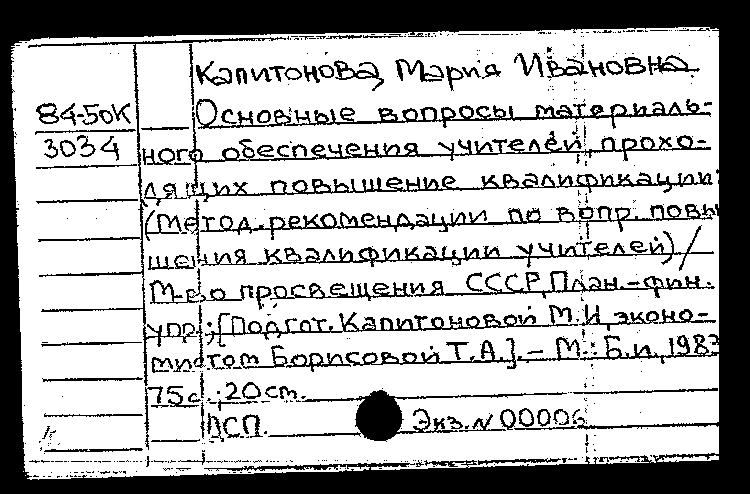 Капитонова, Мария Ивановна
84-50к
Основные вопросы материаль-
3034
ного обеспечения учителей, прохо-
дящих повышение квалификации:
(Метод. рекомендации по вопр. повы
шения квалификации учителей) /
М-во просвещения СССР, План.-фин.
упр.; [Подгот. Капитоновой М.И., эконо-
мистом Борисовой Т.А.]. - М.: Б.и., 1983
75 с.; 20 cm.
ДСП. Экз. № 00006